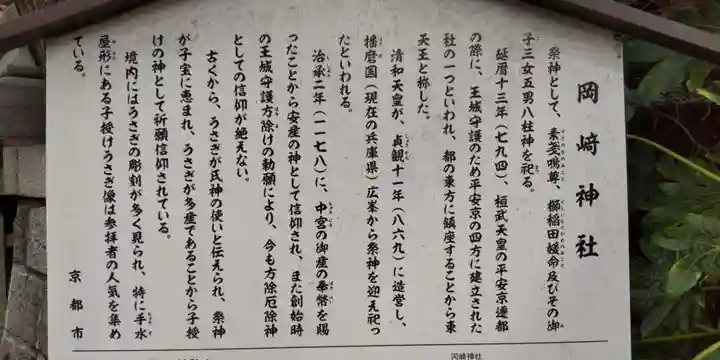 岡﨑神社
祭神として、素戔嗚尊、櫛稲田媛命及びその御
子三女五男八柱神を祀る。
延暦十三年(七九四)、桓武天皇の平安京遷都
の際に、王城守護のため平安京の四方に建立された
社の一つといわれ、都の東方に鎮座することから東
天王と称した。
清和天皇が、貞観十一年(八六九)に造営し、
播磨国(現在の兵庫県)広峯から祭神を迎え祀っ
たといわれる。
治承二年(一一七八)に、中宮の御産の奉幣を賜
ったことから安産の神として信仰され、また創始時
の王城守護方除けの勅願により、今も方除厄除神
としての信仰が絶えない。
古くから、うさぎが氏神の使いと伝えられ、祭神
が子宝に恵まれ、うさぎが多産であることから子授
けの神として祈願信仰されている。
境内にはうさぎの彫刻が多く見られ、特に手水
屋形にある子授けうさぎ像は参拝者の人気を集め
ている。
京都市
岡崎神社